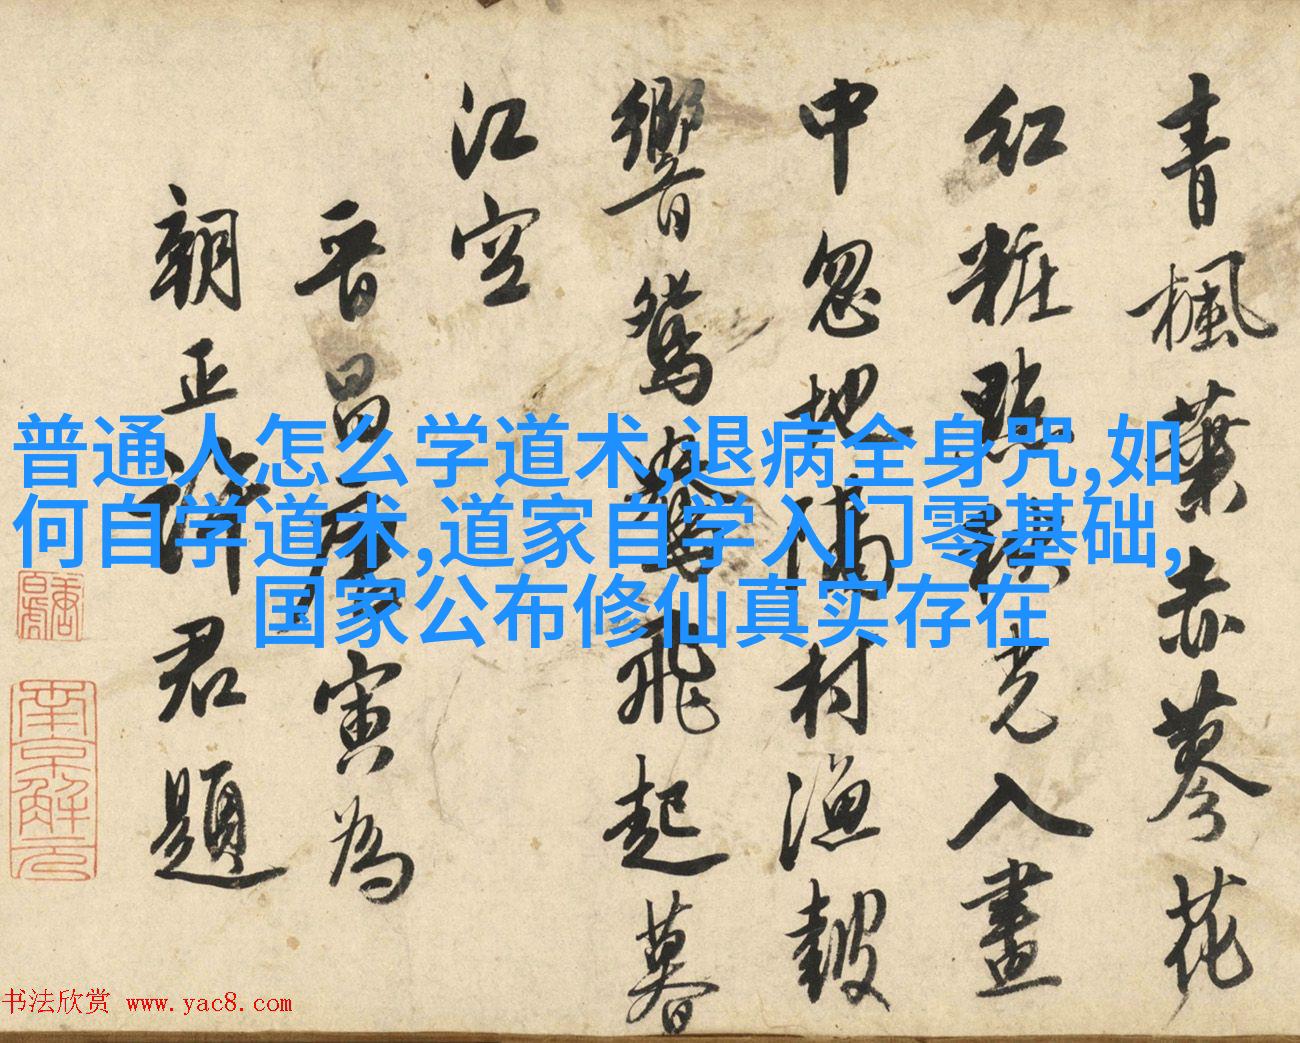 青楓葉赤蓼花
紅粧點秋光入畫
中忽地隔村漁
響鴛鴦飛起暮
江空
晉昌唐寅為
朝正詞君題
南京解元
普通人怎么学道术,退病全身咒,如
何自学道术,道家自学入门零基础,
国家公布修仙真实存在
书法欣赏 www.yac8.com